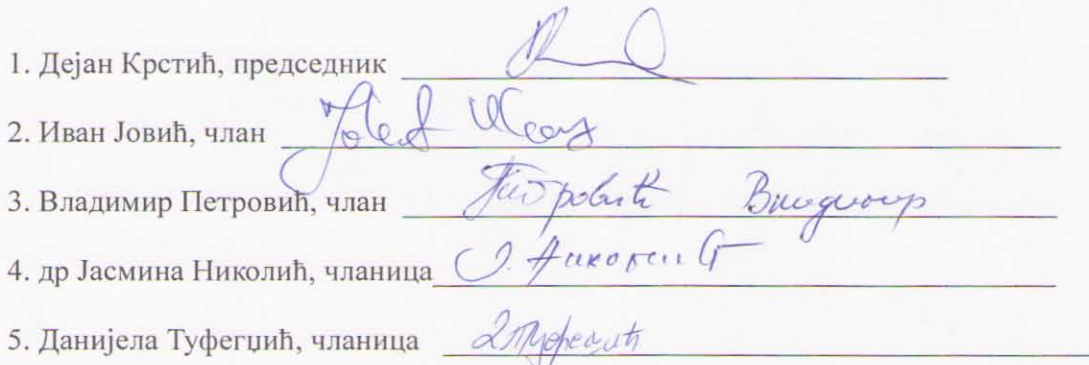 1. Дејан Крстић, председник
2. Иван Јовић, члан
3. Владимир Петровић, члан Петровић Владимир
4. др Јасмина Николић, чланица Ј. Николић
5. Данијела Туфегџић, чланица